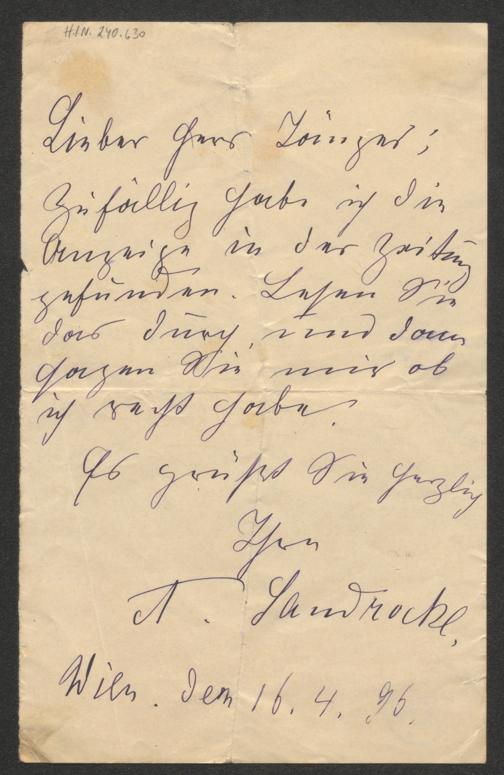 H.I.N. 240.630
Lieber Herr
Zufällig habe ich die
Anzeige in der Zeitung
gefunden. Lesen Sie
das durch, und dann
sagen Sie mir ob
ich recht habe.
Es grüßt Sie herzlich
Ihre
A. Sandrock.
Wien. den 16. 4. 96.